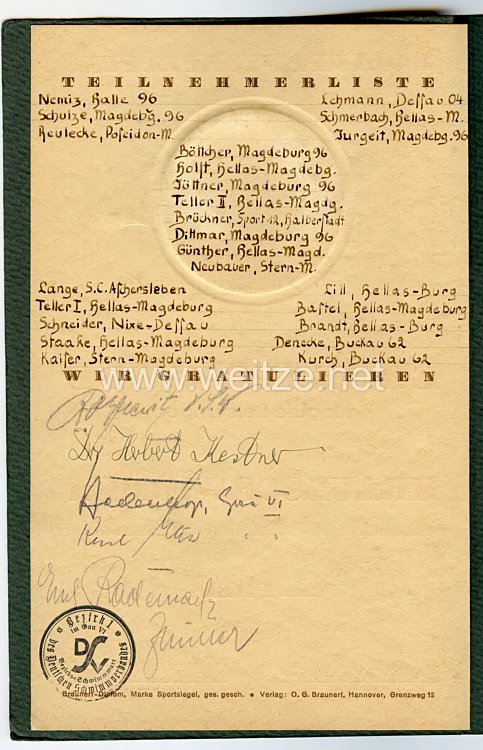 TEILNEHMERLISTE
Nemiz, Halle 96
Lehmann, Dessau 04
Schulze, Magdebg. 96
Schmerbach, Hellas-M.
Reulecke, Poseidon-M.
Jurgeit, Magdebg. 96
Böttcher, Magdeburg 96
Holst, Hellas-Magdebg.
Jüttner, Magdeburg 96
Teller II, Hellas-Magdg.
Brückner, Sport 12, Halberstadt
Dittmar, Magdeburg 96
Günther, Hellas-Magd.
Neubauer, Stern-M.
Lange, S.C. Aschersleben
Lill, Hellas-Burg
Teller I, Hellas-Magdeburg
Bastel, Hellas-Magdeburg
Schneider, Nixe-Dessau
Brandt, Hellas-Burg
Staake, Hellas-Magdeburg
Denecke, Buckau 62
Kaiser, Stern-Magdeburg
Kurch, Buckau 62
WIR GRATULIEREN
www.weitze.net
Dr. Herbert Kestner
Gau VI
Karl
" "
Emil Rademacher
Bezirk 1
im Gau VI
Bezirks-Schwimmwart
des Deutschen Schwimmverbandes
Braunert-Diplom, Marke Sportsiegel, ges. gesch. • Verlag: O. G. Braunert, Hannover, Grenzweg 12